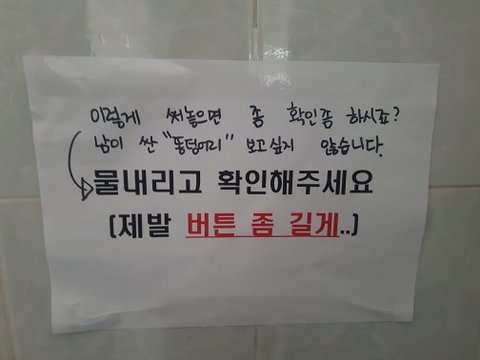 이렇게 써놓으면 좀 확인좀 하시죠?
남이 싼 "똥덩어리" 보고싶지 않습니다.
물내리고 확인해주세요
(제발 버튼 좀 길게..)